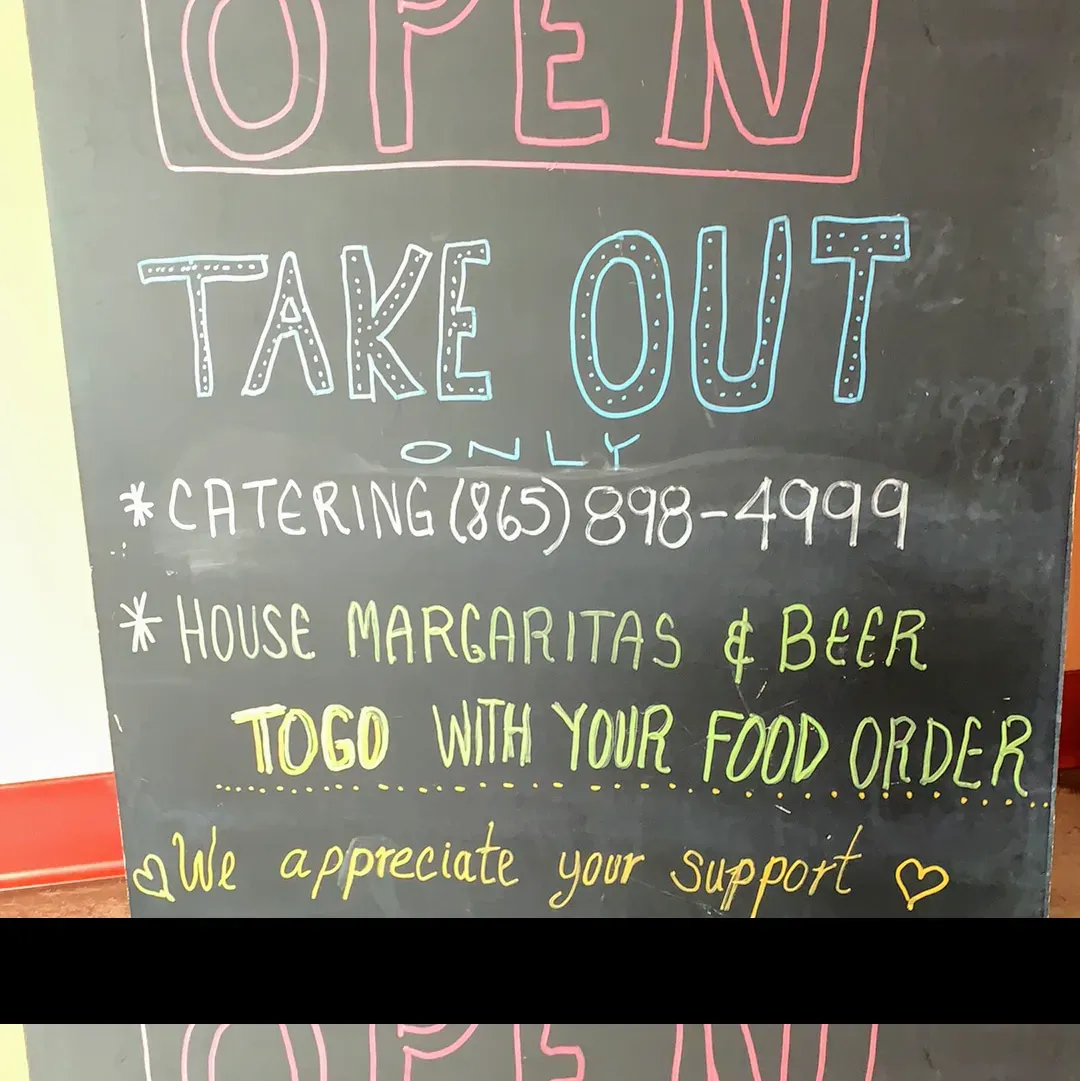 OPEN
TAKE OUT
ONLY
* CATERING (865) 898-4999
* HOUSE MARGARITAS & BEER
TOGO WITH YOUR FOOD ORDER
We appreciate your support
OPEN